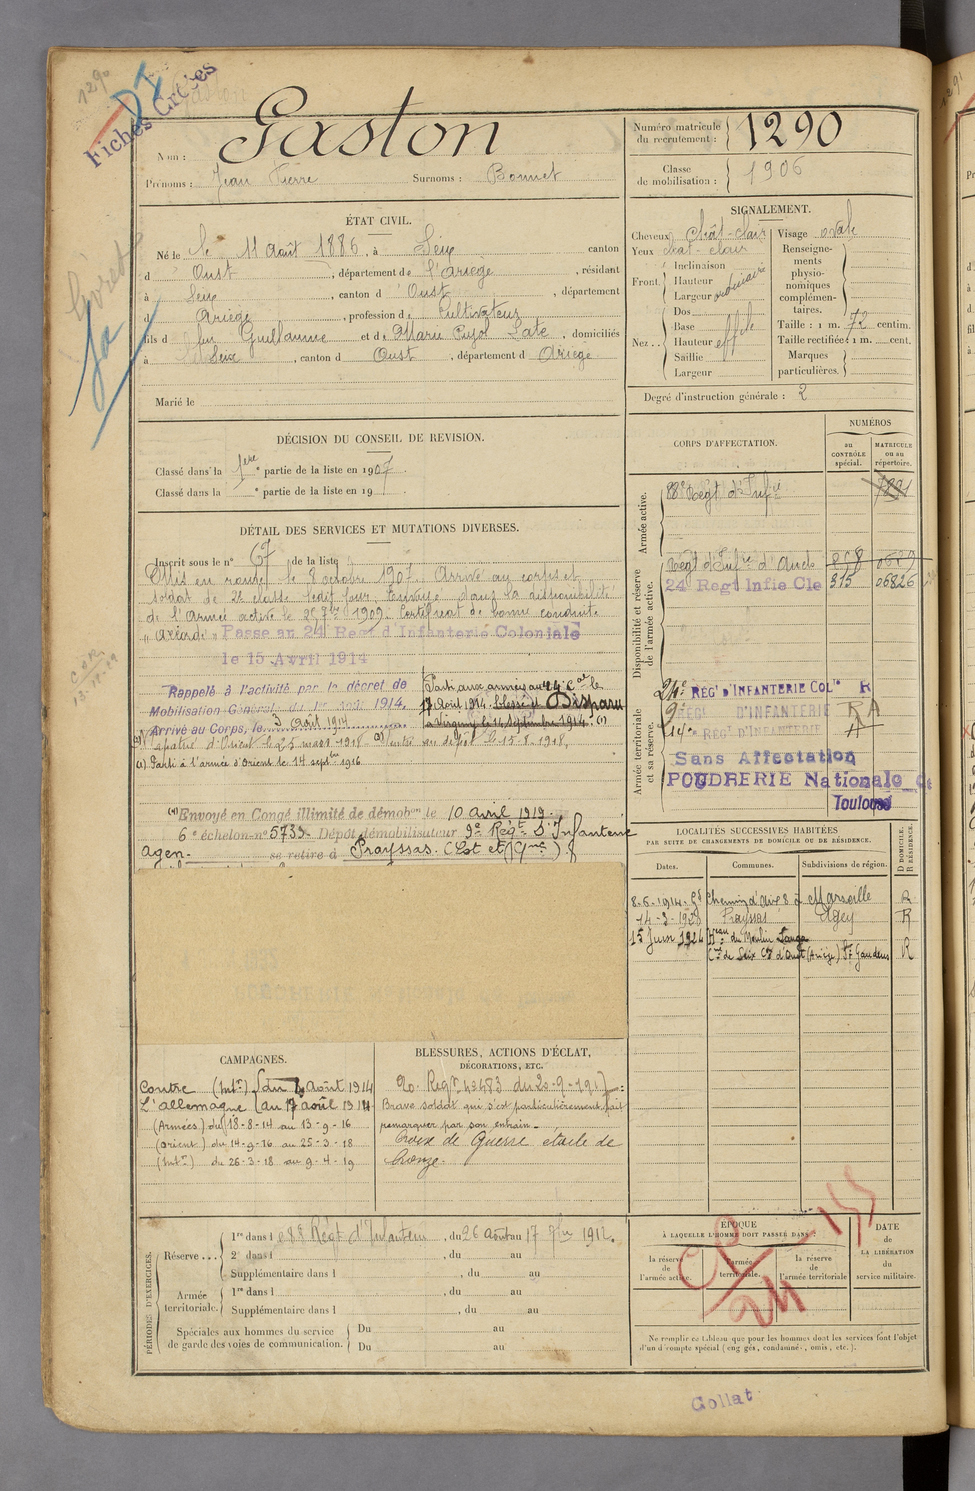 1290
Fiches Créées
Nom : Gaston
Prénoms : Jean Pierre Surnoms : Bonnet
Numéro matricule du recrutement : 1290
Classe de mobilisation : 1906
ÉTAT CIVIL.
Né le le 11 Août 1886, à Seix canton
d Oust, département de l'Ariège, résidant
à Seix, canton d Oust, département
d Ariège, profession de Cultivateur
fils d feu Guillaume et de Marie Pujol Late, domiciliés
à Seix, canton d Oust, département d Ariège
Marié le
SIGNALEMENT.
Cheveux chât-clair Visage ovale
Yeux chat-clair
Front. Inclinaison
Hauteur
Largeur ordinaire
Nez... Dos
Base
Hauteur effilé
Saillie
Largeur
Renseignements physionomiques complémentaires.
Taille : 1 m. 72 centim.
Taille rectifiée : 1 m. cent.
Marques particulières.
Degré d'instruction générale : 2
DÉCISION DU CONSEIL DE REVISION.
Classé dans la 1ere partie de la liste en 1907.
Classé dans la e partie de la liste en 19
CORPS D'AFFECTATION.
NUMÉROS
au CONTRÔLE spécial.
MATRICULE ou au répertoire.
Armée active.
88e Regt d'Infie
Disponibilité et réserve de l'armée active.
Regt d'Infie d'Auch 858
24 Regt Infie Cle 315 06826
Armée territoriale et sa réserve.
24e RÉGt D'INFANTERIE Colle R
9e RÉGt D'INFANTERIE RA
14e RÉGt D'INFANTERIE A
Sans Affectation
POUDRERIE Nationale de
Toulouse
DÉTAIL DES SERVICES ET MUTATIONS DIVERSES.
Inscrit sous le n° 67 de la liste
Mis en route le 8 octobre 1907. Arrivé au corps et
soldat de 2e classe ledit jour. Envoyé dans la disponibilité
de l'Armée active le 25 7bre 1909. Certificat de bonne conduite
"Accordé" Passé au 24 Regt d'Infanterie Coloniale
le 15 Avril 1914
Rappelé à l'activité par le décret de
Mobilisation Générale du 1er août 1914,
Arrivé au Corps, le 3 Août 1914
Parti aux armées au 24 Cal le
17 Août 1914. blessé et Disparu
à Virginy le 14 Septembre 1914. (1)
Rapatrié d'Orient le 25 mars 1918 (3) rentré au dépôt le 15-8-1918,
(1) Parti à l'armée d'Orient le 14 septbre 1916
(4) Envoyé en Congé illimité de démobon le 10 avril 1919.
6e échelon-n° 5733- Dépôt démobilisateur 9e Regt D'Infanterie
Agen.- se retire à Prayssas. (Lot et Gne)
LOCALITÉS SUCCESSIVES HABITÉES
PAR SUITE DE CHANGEMENTS DE DOMICILE OU DE RÉSIDENCE.
Dates. Communes. Subdivisions de région. D DOMICILE. R RÉSIDENCE.
8-6-1914 Marseille R
14-3-1923 Prayssas Agen R
15 Juin 1924 Hau du Moulin
Cne de Seix Con d'Oust (Ariège) St Gaudens R
CAMPAGNES.
Contre (Intr) du 4 Août 1914
L'allemagne au 17 août 1914
(Armées) du 18-8-14 au 13-9-16
(Orient) du 14-9-16 au 25-3-18
(Intr) du 26-3-18 au 9-4-19
BLESSURES, ACTIONS D'ÉCLAT,
DÉCORATIONS, ETC.
Brave soldat qui s'est particulièrement fait
remarquer par son entrain.-
Croix de Guerre étoile de
bronze.
PÉRIODES D'EXERCICES.
Réserve... 1re dans l e 88e Régt d'Infanterie, du 26 Août au 17 7bre 1912.
2e dans l , du au
Supplémentaire dans l , du au
Armée territoriale. 1re dans l , du au
Supplémentaire dans l , du au
Spéciales aux hommes du service de garde des voies de communication. Du au
Du au
ÉPOQUE
À LAQUELLE L'HOMME DOIT PASSER DANS :
la réserve de l'armée active.
l'armée territoriale.
la réserve de l'armée territoriale
DATE de LA LIBÉRATION du service militaire.
Ne remplir ce tableau que pour les hommes dont les services font l'objet
d'un décompte spécial (engagés, condamnés, omis, etc.).
Collat